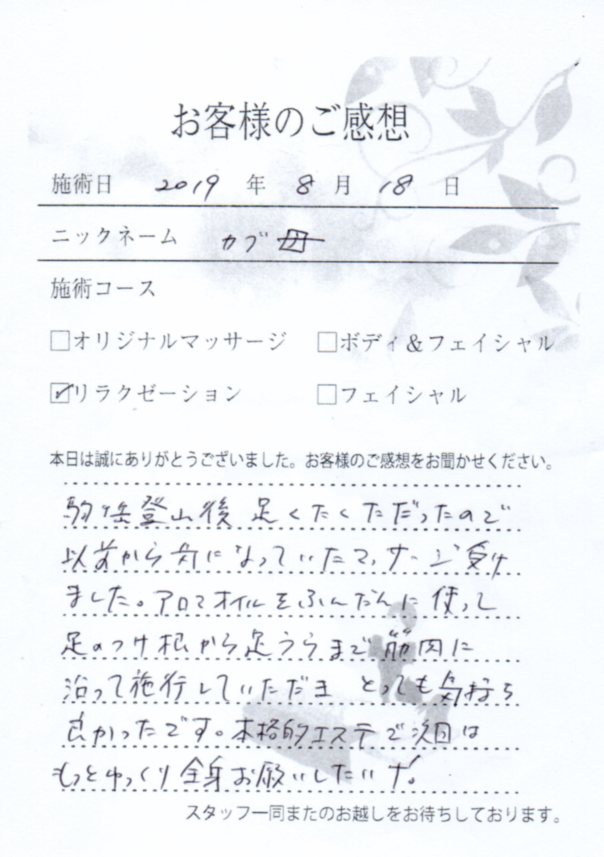 お客様のご感想
施術日 2019 年 8 月 18 日
ニックネーム カブ母
施術コース
□オリジナルマッサージ □ボディ＆フェイシャル
☑リラクゼーション □フェイシャル
本日は誠にありがとうございました。お客様のご感想をお聞かせください。
駒ヶ岳登山後 足くたくただったので
以前から気になっていたマッサージ受け
ました。アロマオイルをふんだんに使って
足のつけ根から足うらまで筋肉に
沿って施行していただき とっても気持ち
良かったです。本格的エステで次回は
もっとゆっくり全身お願いしたいです。
スタッフ一同またのお越しをお待ちしております。